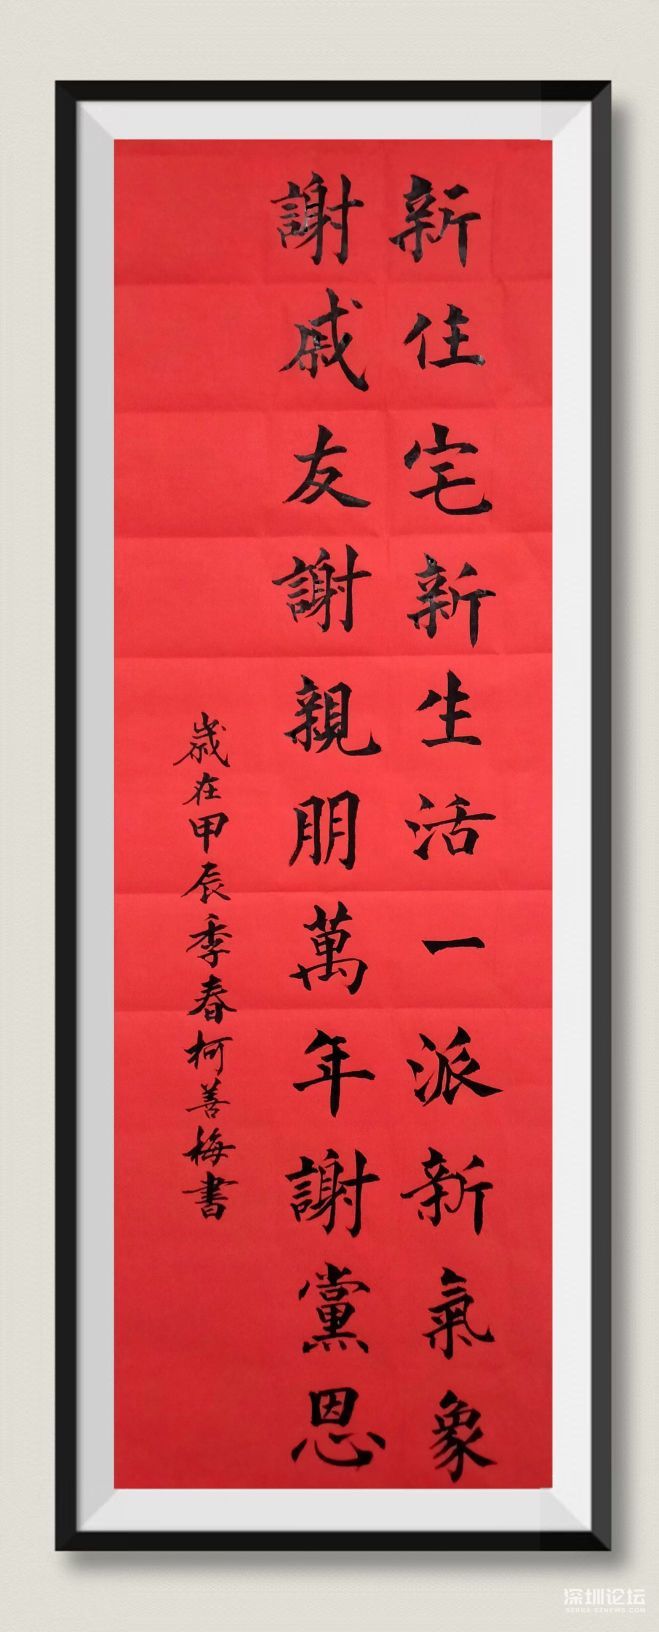 新住宅新生活一派新氣象
謝戚友謝親朋萬年謝黨恩
歲在甲辰季春柯善梅書
深圳论坛
SZBBS.SZNEWS.COM